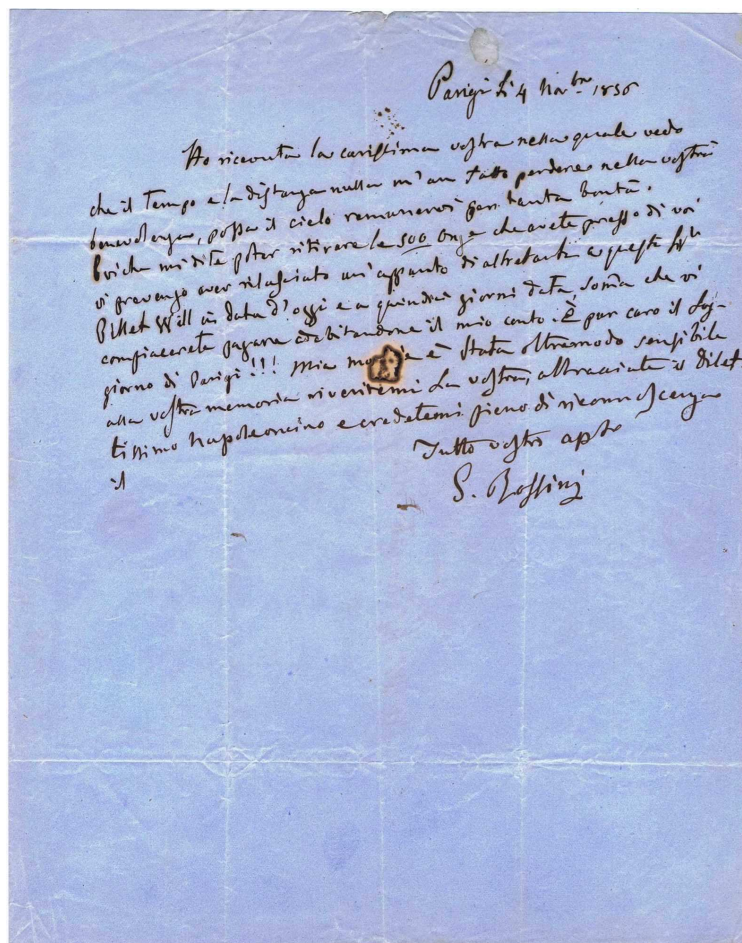 Parigi li 4 Novbre 1856
Ho ricevuta la carissima vostra nella quale vedo
che il Tempo e la distanza nulla m'an fatto perdere nella vostra
benevolenza, possa il cielo remunervi per tanta bontà.
Poiche mi dite poter ritirare le 500 onze che avete presso di voi
vi prevengo aver rilasciato un'appunto di altretante a questi Sri
Pillet Will in data d'oggi e a quindici giorni data, soma che vi
compiacerete pagare adebitandone il mio conto. È pur caro il sog-
giorno di Parigi!!! Mia mo e è stata oltremodo sensibile
alla vostra memoria riveritemi la vostra, abbracciate il dilet-
tissimo Napoleoncino e credetemi pieno di riconoscenza
il Tutto vostro
G. Rossini